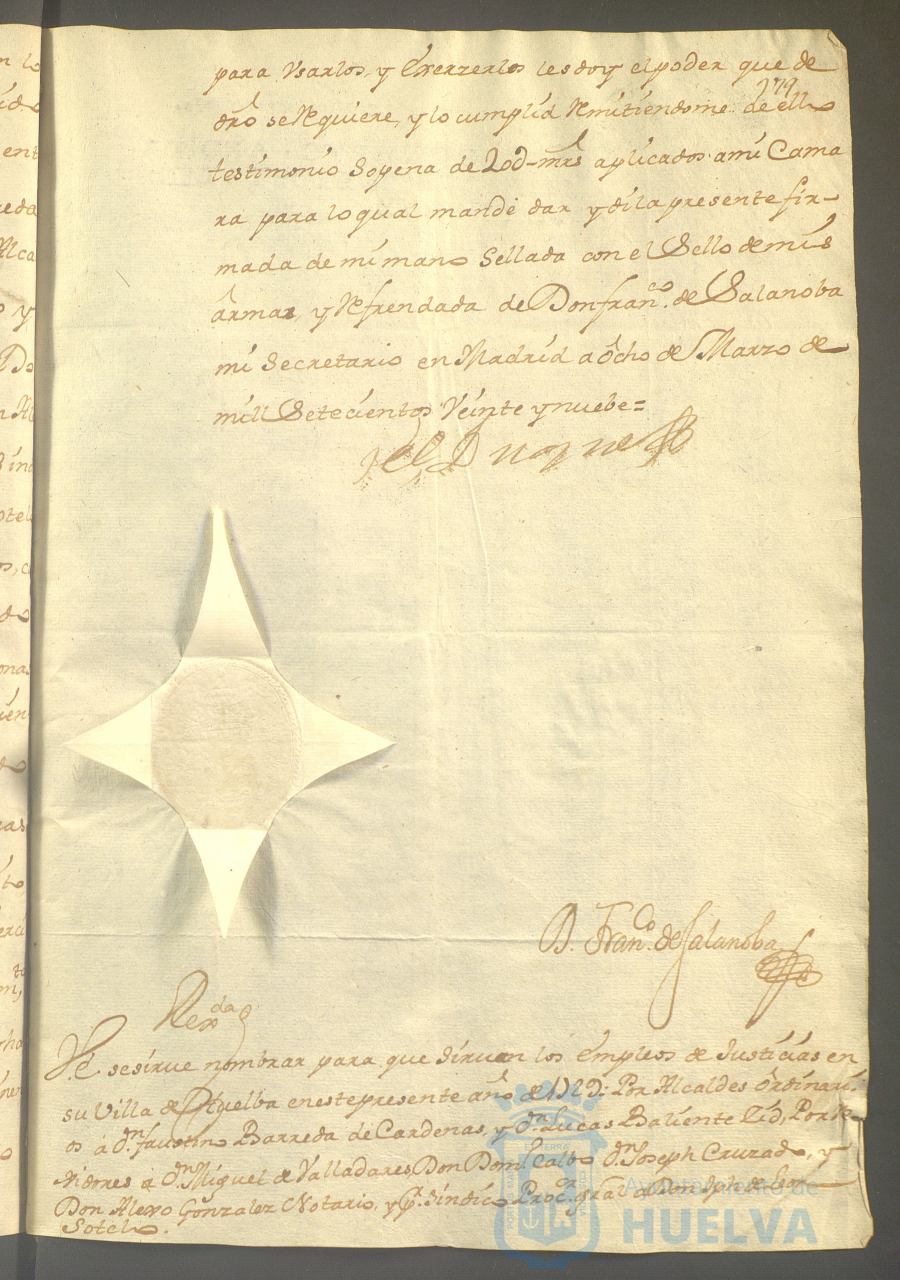 para Vsarlos, y Exerzerlos les doy el poder que de
279
dro se Requiere, y lo cumplid Remitiendome de ello
testimonio So pena de 20d-mrs aplicados a mi Cama
ra para lo qual mande dar y di la presente fir-
mada de mi mano Sellada con el Sello de mis
armas, y Refrendada de Don fran.co de Salanoba
mi Secretario en Madrid a ocho de Marzo de
mill Setecientos Veinte y nuebe=
el Duque
D. Fran.co de Salanoba
Rex.da
V.E. se sirue nombrar para que siruan los empleos de Justicias en
su Villa de Huelba en este presente año de 1729: Por Alcaldes ordinari
os á Dn. faustino Barreda de Cardenas, y Dn. Lucas Baliente Zid, Por Re
xidores a Dn. Miguel de Valladares, Don Dom.o Calbo Dn. Joseph Cruzado, y
Don Alexo Gonzalez Notario, y Pr. Sindico Proc.or gral a Don Jph de leon
Sotelo.
Ayuntamiento de
HUELVA